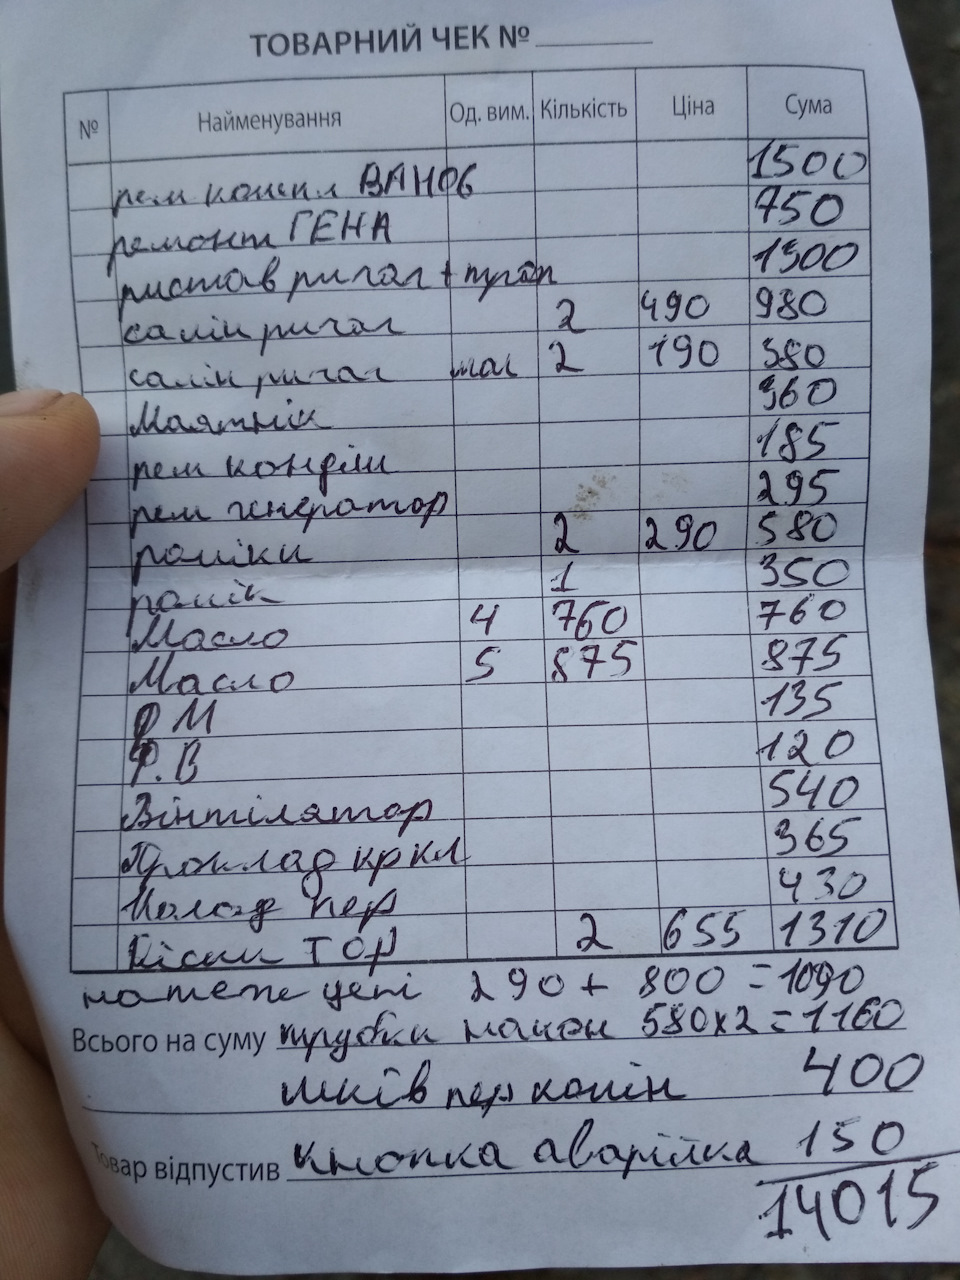 ТОВАРНИЙ ЧЕК №
№ Найменування Од. вим. Кількість Ціна Сума
рем компл ВАНОБ 1500
ремонт ГЕНА 750
ричаг + 1300
салін ричаг 2 490 980
салін ричаг 2 190 380
Маятнік 360
рем 185
рем генератор 295
роліки 2 290 580
ролік 1 350
Масло 4 760 760
Масло 5 875 875
Ф М 135
Ф. В 120
Вінтілятор 540
Проклад кркл 365
Колод пер 430
ТОР 2 655 1310
цепі 290 + 800 = 1090
Всього на суму трубки 580х2 = 1160
шків пер колін 400
Товар відпустив кнопка аварійка 150
14015